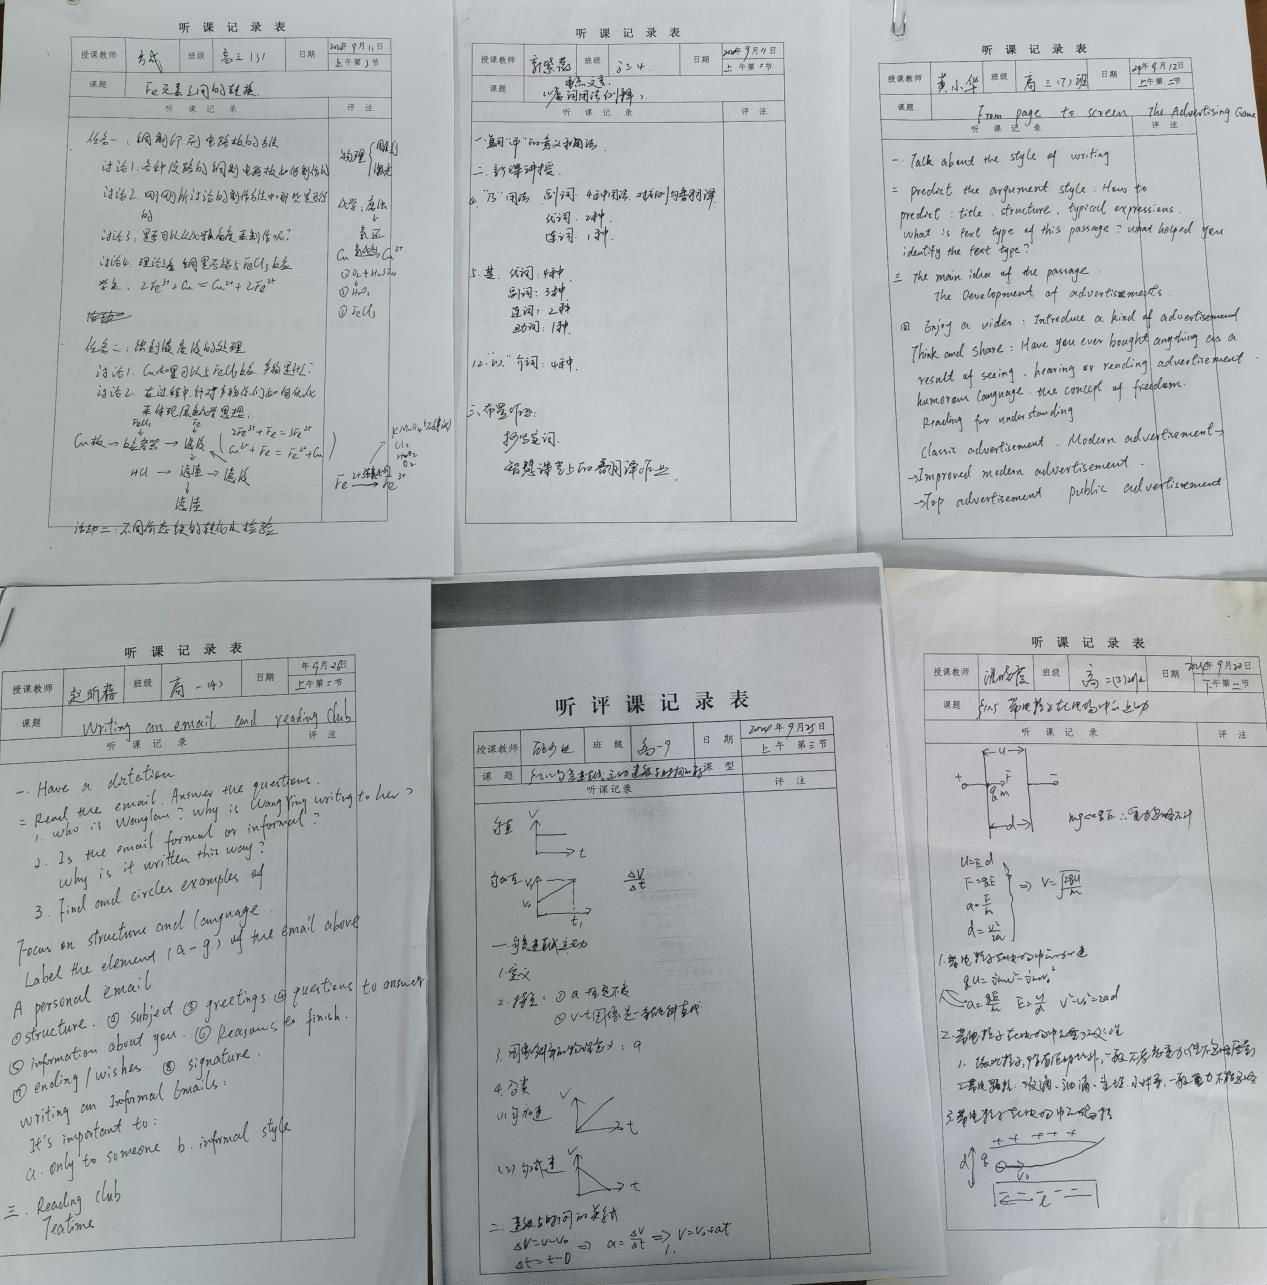 听 课 记 录 表
授课教师 班级 高三 131 日期 2024年9月11日
上午第3节
课题 Fe元素之间的转换
听 课 记 录 评 注
任务一：铜制印刷电路板的方法
讨论1.各种反路的铜制电路板如何制作的
讨论2.刚刚所讨论的制作方法中哪些是可行的
讨论3：
讨论4.理论上 铜是否能与FeCl3反应
学生：2Fe³⁺+Cu=Cu²⁺+2Fe²⁺
任务二：蚀刻液废液的处理
讨论1.Cu如果可以与FeCl3反应.产物是什么？
讨论2.在过程中.针对产物你们如何优化
来体现绿色化学思想.
FeCl3 Fe
Cu板→反应器→滤液 2Fe³⁺+Fe=3Fe²⁺
Cu²⁺+Fe=Fe²⁺+Cu
HCl→滤渣→滤液
滤渣
活动二：不同价态铁的转化及检验
物理
化学：腐蚀
Cu Cu²⁺
①O2+H2SO4
②H2O2
③FeCl3
KMnO4
Cl2
H2O2
O2
Fe²⁺ Fe³⁺
听 课 记 录 表
授课教师 郭紫薇 班级 高三4. 日期 2024年9月11日
上午第二节
课题 重点文言
虚词用法例释
听 课 记 录 评 注
二.新课讲授.
4."乃"用法 副词：4种用法.
代词：2种.
连词：1种.
5.其 代词：4种
副词：3种.
连词：2种
助词：1种.
12."以" 介词：4种.
三.布置作业:
抄写实词.
智慧课堂上的翻译作业.
听 课 记 录 表
授课教师 黄小华 班级 高三(7)班 日期 24年9月12日
上午第二节
课题 From page to screen The Advertising Game
听 课 记 录 评 注
一. Talk about the style of writing
二 predict the argument style: How to
predict: title. structure. typical expressions.
what is text type of this passage? what helped you
identify the text type?
三 The main idea of the passage.
The Development of advertisements.
四 Enjoy a video: Introduce a kind of advertisement
Think and share: Have you ever bought anything as a
result of seeing, hearing or reading advertisement
humorous language. the concept of freedom.
Reading for understanding
Classic advertisement. Modern advertisement→
→Improved modern advertisement.
→Top advertisement public advertisement
听 课 记 录 表
授课教师 赵昕蓓 班级 高一(4) 日期 年9月20日
上午第二节
课题 Writing an email and reading club
听 课 记 录 评 注
一. Have a dictation
二 Read the email. Answer the questions.
1. who is Wanglan? why is Wangying writing to her?
2. Is the email formal or informal?
Why is it written this way?
3. Find and circles examples of
Focus on structure and language.
Label the element (a-g) of the email above
A personal email
①structure. ② subject ③ greetings ④ questions to answer
⑤ information about you. ⑥ Reasons to finish.
⑦ ending/wishes ⑧ signature.
writing an Informal Emails:
It's important to:
a. only to someone b. informal style
三. Reading club
Teatime
听 评 课 记 录 表
授课教师 班 级 高一9 日 期 2024年9月25日
上午 第三节
课 题 §2.2匀变速直线运动速度与时间的关系 课 型
听课记录 评 注
匀速 V t
匀加速 V V0 t1 ΔV/Δt
一.匀变速直线运动
1.定义
2.特点：①a恒定不变
②v-t图像是一条倾斜直线
3.图像斜率的物理意义：a
4.分类
(1)匀加速 V t
(2)匀减速 V t
二.速度与时间的关系式
ΔV=V-V0
Δt=t-0 ⇒ a=ΔV/Δt ⇒ V=V0+at
听 课 记 录 表
授课教师 班级 高二(3) 日期 2024年9月20日
下午第二节
课题 §10.5 带电粒子在电场中的运动
听 课 记 录 评 注
U
+ −
q m F
d
mg<<qE ∴重力忽略不计
U=Ed
F=qE
a=F/m
d=v²/2a
⇒ V=√(2qU/m)
1.带电粒子在电场中的加速
qU=½mv²-½mv0²
a=qE/m E=U/d v²-v0²=2ad
2.带电粒子在电场中
2.带电颗粒：液滴、油滴、尘埃、小球等，一般重力不能忽略
3.带电粒子在电场中的偏转
+ + + + +
d q V0
− − − −